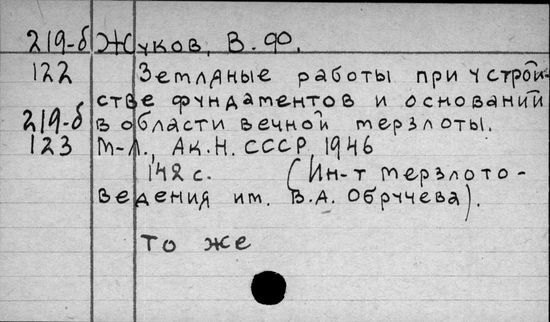 219-б Жуков, В.Ф.
122 Земляные работы при устрой-
стве фундаментов и оснований
219-б в области вечной терзлоты.
123 М-Л., Ак.Н. СССР, 1946
142 с. (Ин-т терзлото-
ведения им. В.А. Обручева).
То же